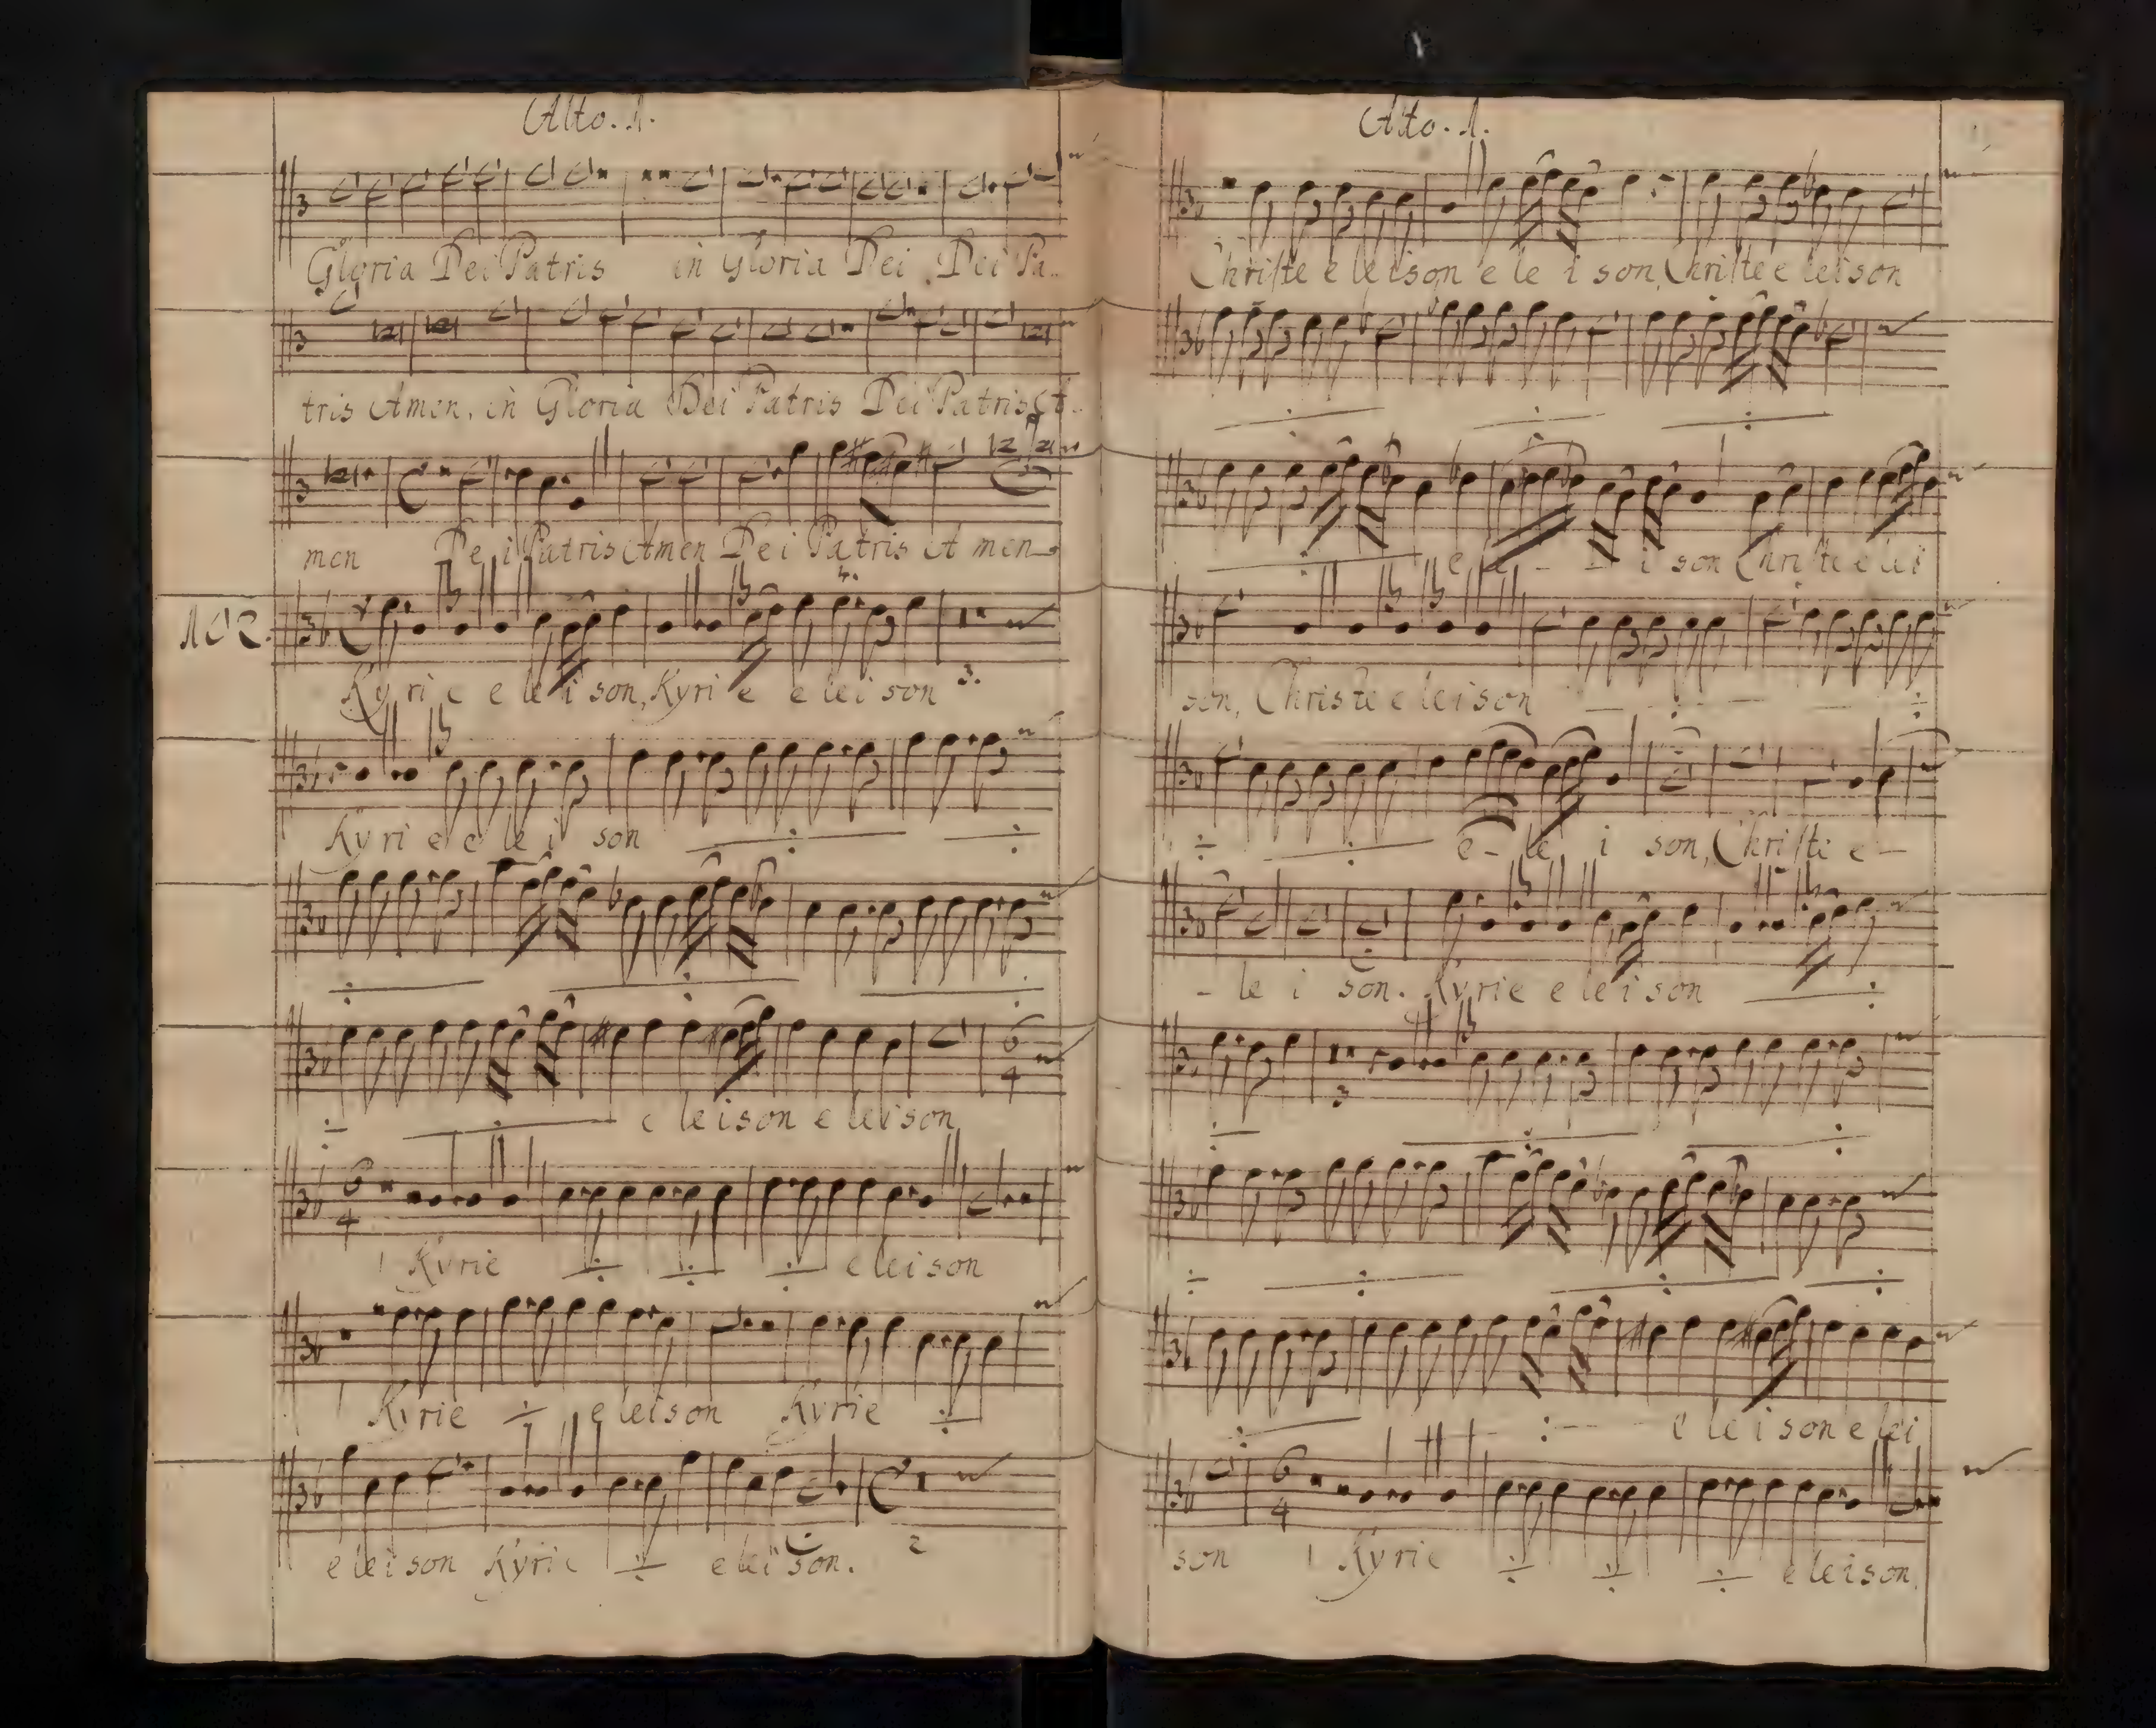 Alto. 1.
Gloria Dei Patris in Gloria Dei Dei Pa..
tris Amen, in Gloria Dei Patris Dei Patris A..
men De i Patris Amen Dei Patris A men
102.
Ky ri e e le i son, Kyri e e lei son 3.
Kyri e e le i son ÷ ÷
÷ ÷ ÷
÷ ÷ e leison e leison
6
4
6
4
Kyrie ÷ ÷ ÷ eleison
Kyrie ÷ eleison Kyrie ÷
eleison Kyrie ÷ eleison. 2
Alto. 1.
Christe e leison e le i son, Christe e leison
÷ ÷ ÷
÷ e le - - i son Christe e lei
son, Christe e leison ÷ ÷
÷ ÷ e - le i son, Christe e -
- le i son. Kyrie e leison ÷
3
÷ ÷ ÷
÷ ÷ ÷ ÷
÷ ÷ e le i son e lei
6
4
son Kyrie ÷ ÷ ÷ e leison.